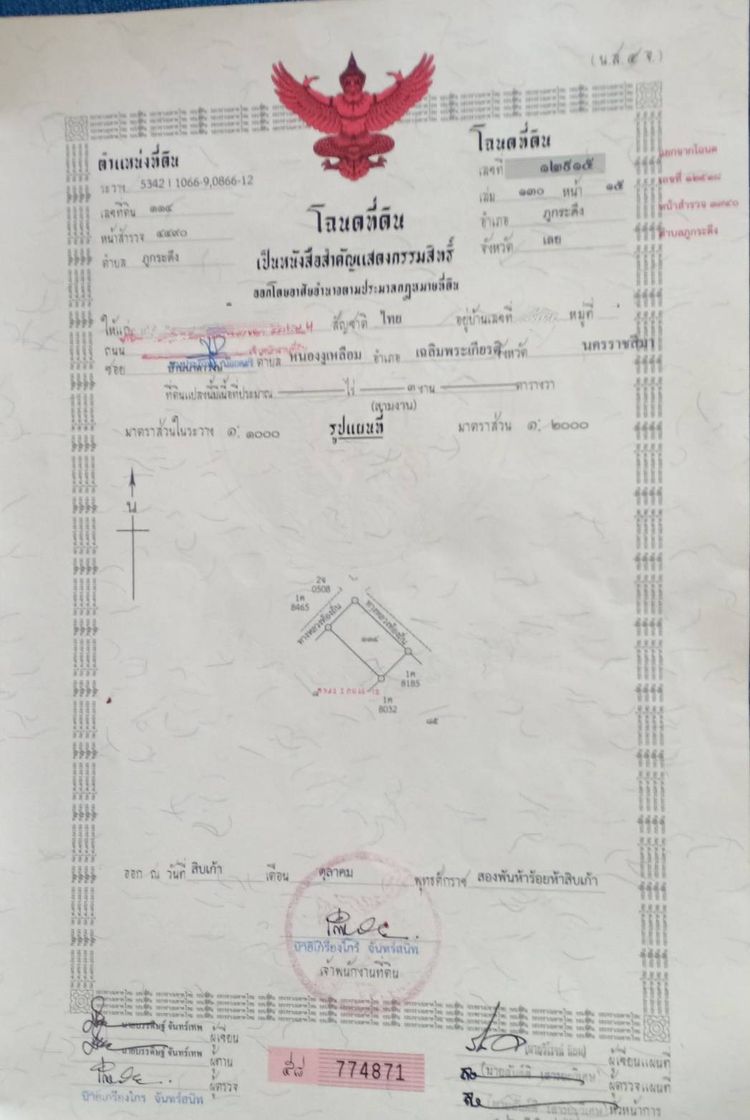 (น.ส.๔ จ.)
ตำแหน่งที่ดิน
ระวาง 5342 I 1066-9,0866-12
เลขที่ดิน ๑๑๔
หน้าสำรวจ ๔๔๙๐
ตำบล ภูกระดึง
โฉนดที่ดิน
เลขที่ ๑๒๙๑๕
เล่ม ๑๓๐ หน้า ๑๕
อำเภอ ภูกระดึง
จังหวัด เลย
แยกจากโฉนด
ตำบลภูกระดึง
โฉนดที่ดิน
เป็นหนังสือสำคัญแสดงกรรมสิทธิ์
ออกโดยอาศัยอำนาจตามประมวลกฎหมายที่ดิน
ให้แก่ สัญชาติ ไทย อยู่บ้านเลขที่ หมู่ที่
ถนน
ซอย ตำบล หนองงูเหลือม อำเภอ เฉลิมพระเกียรติ จังหวัด นครราชสีมา
ที่ดินแปลงนี้มีเนื้อที่ประมาณ ไร่ ๓ งาน ตารางวา
(สามงาน)
มาตราส่วนในระวาง ๑: ๑๐๐๐ รูปแผนที่ มาตราส่วน ๑: ๒๐๐๐
น
2จ
0508
1ค
8465
ทางหลวงท้องถิ่น
ทางหลวงท้องถิ่น
๑๑๔
1ค
8185
1ค
8032
๘๕
ออก ณ วันที่ สิบเก้า เดือน ตุลาคม พุทธศักราช สองพันห้าร้อยห้าสิบเก้า
นายเกรียงไกร จันทร์สนิท
เจ้าพนักงานที่ดิน
นายบรรดิษฐ์ จันทร์เทพ ผู้เขียน
นายบรรดิษฐ์ จันทร์เทพ ผู้ทาน
ผู้ตรวจ
นายเกรียงไกร จันทร์สนิท
๕๘ 774871
ผู้เขียนแผนที่
ผู้ตรวจแผนที่